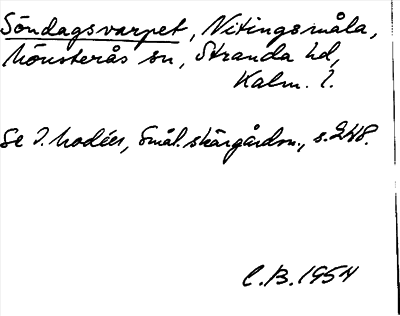 Söndagsvarpet, Nitingsmåla,
Mönsterås sn, Stranda hd,
Kalm. l.
Se I. Modéer, Smål. skärgårdsn., s. 248.
C.B. 1954